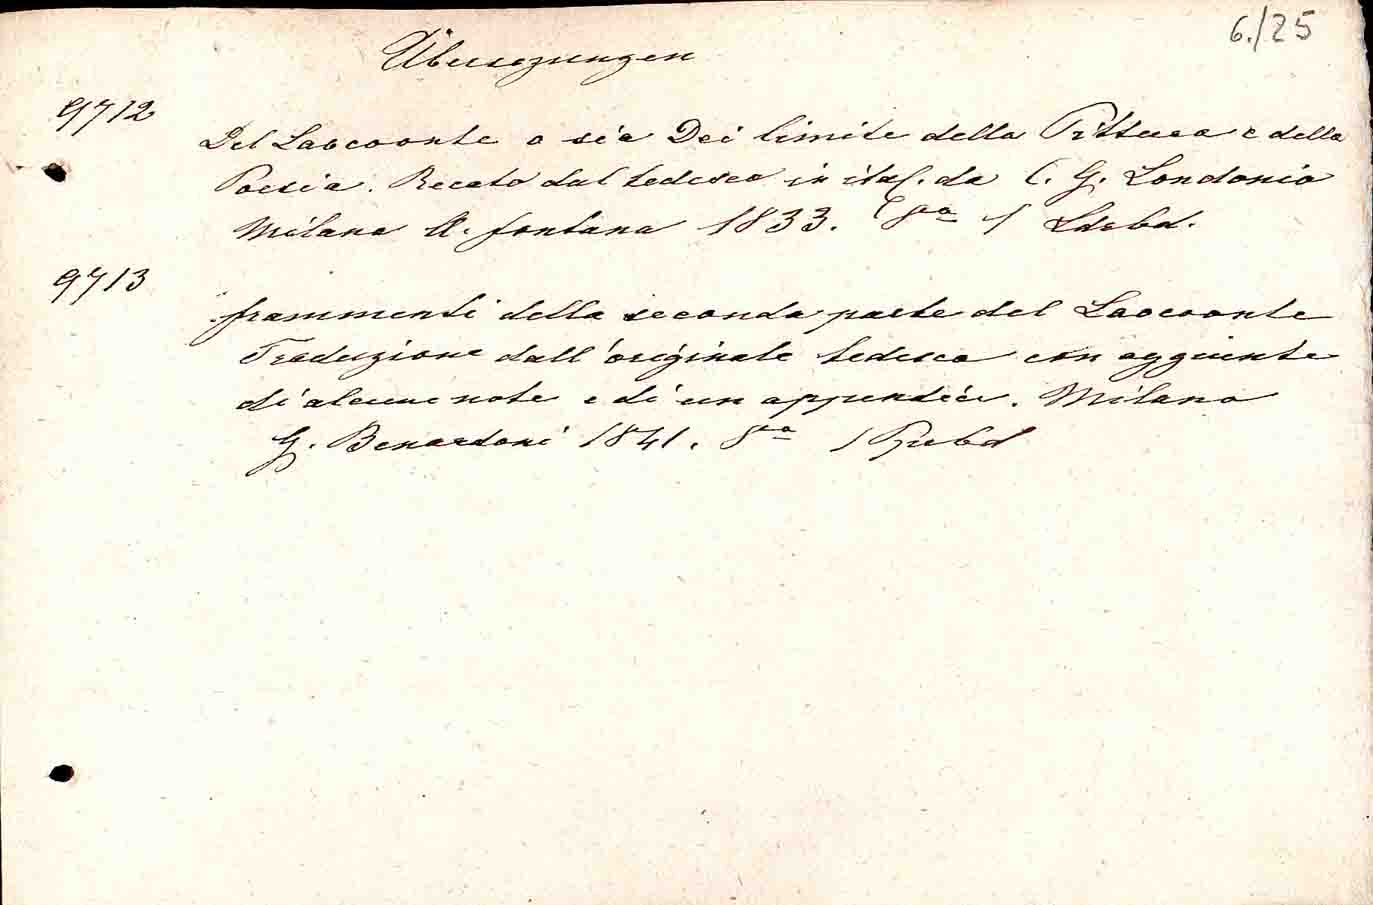 6./25
Übersezungen
9712
Del Laocoonte o sia Dei limite della Pittura e della
Poesia. Recato dal tedesco in ital. da C. G. Londonio
Milano A. fontana 1833. 8va 1 Ldrbd.
9713
frammenti della seconda parte del Laocoonte
Traduzione dall'originale tedesco con aggiunte
di alcune note e di un appendice. Milano
G. Bernardoni 1841. 8va 1